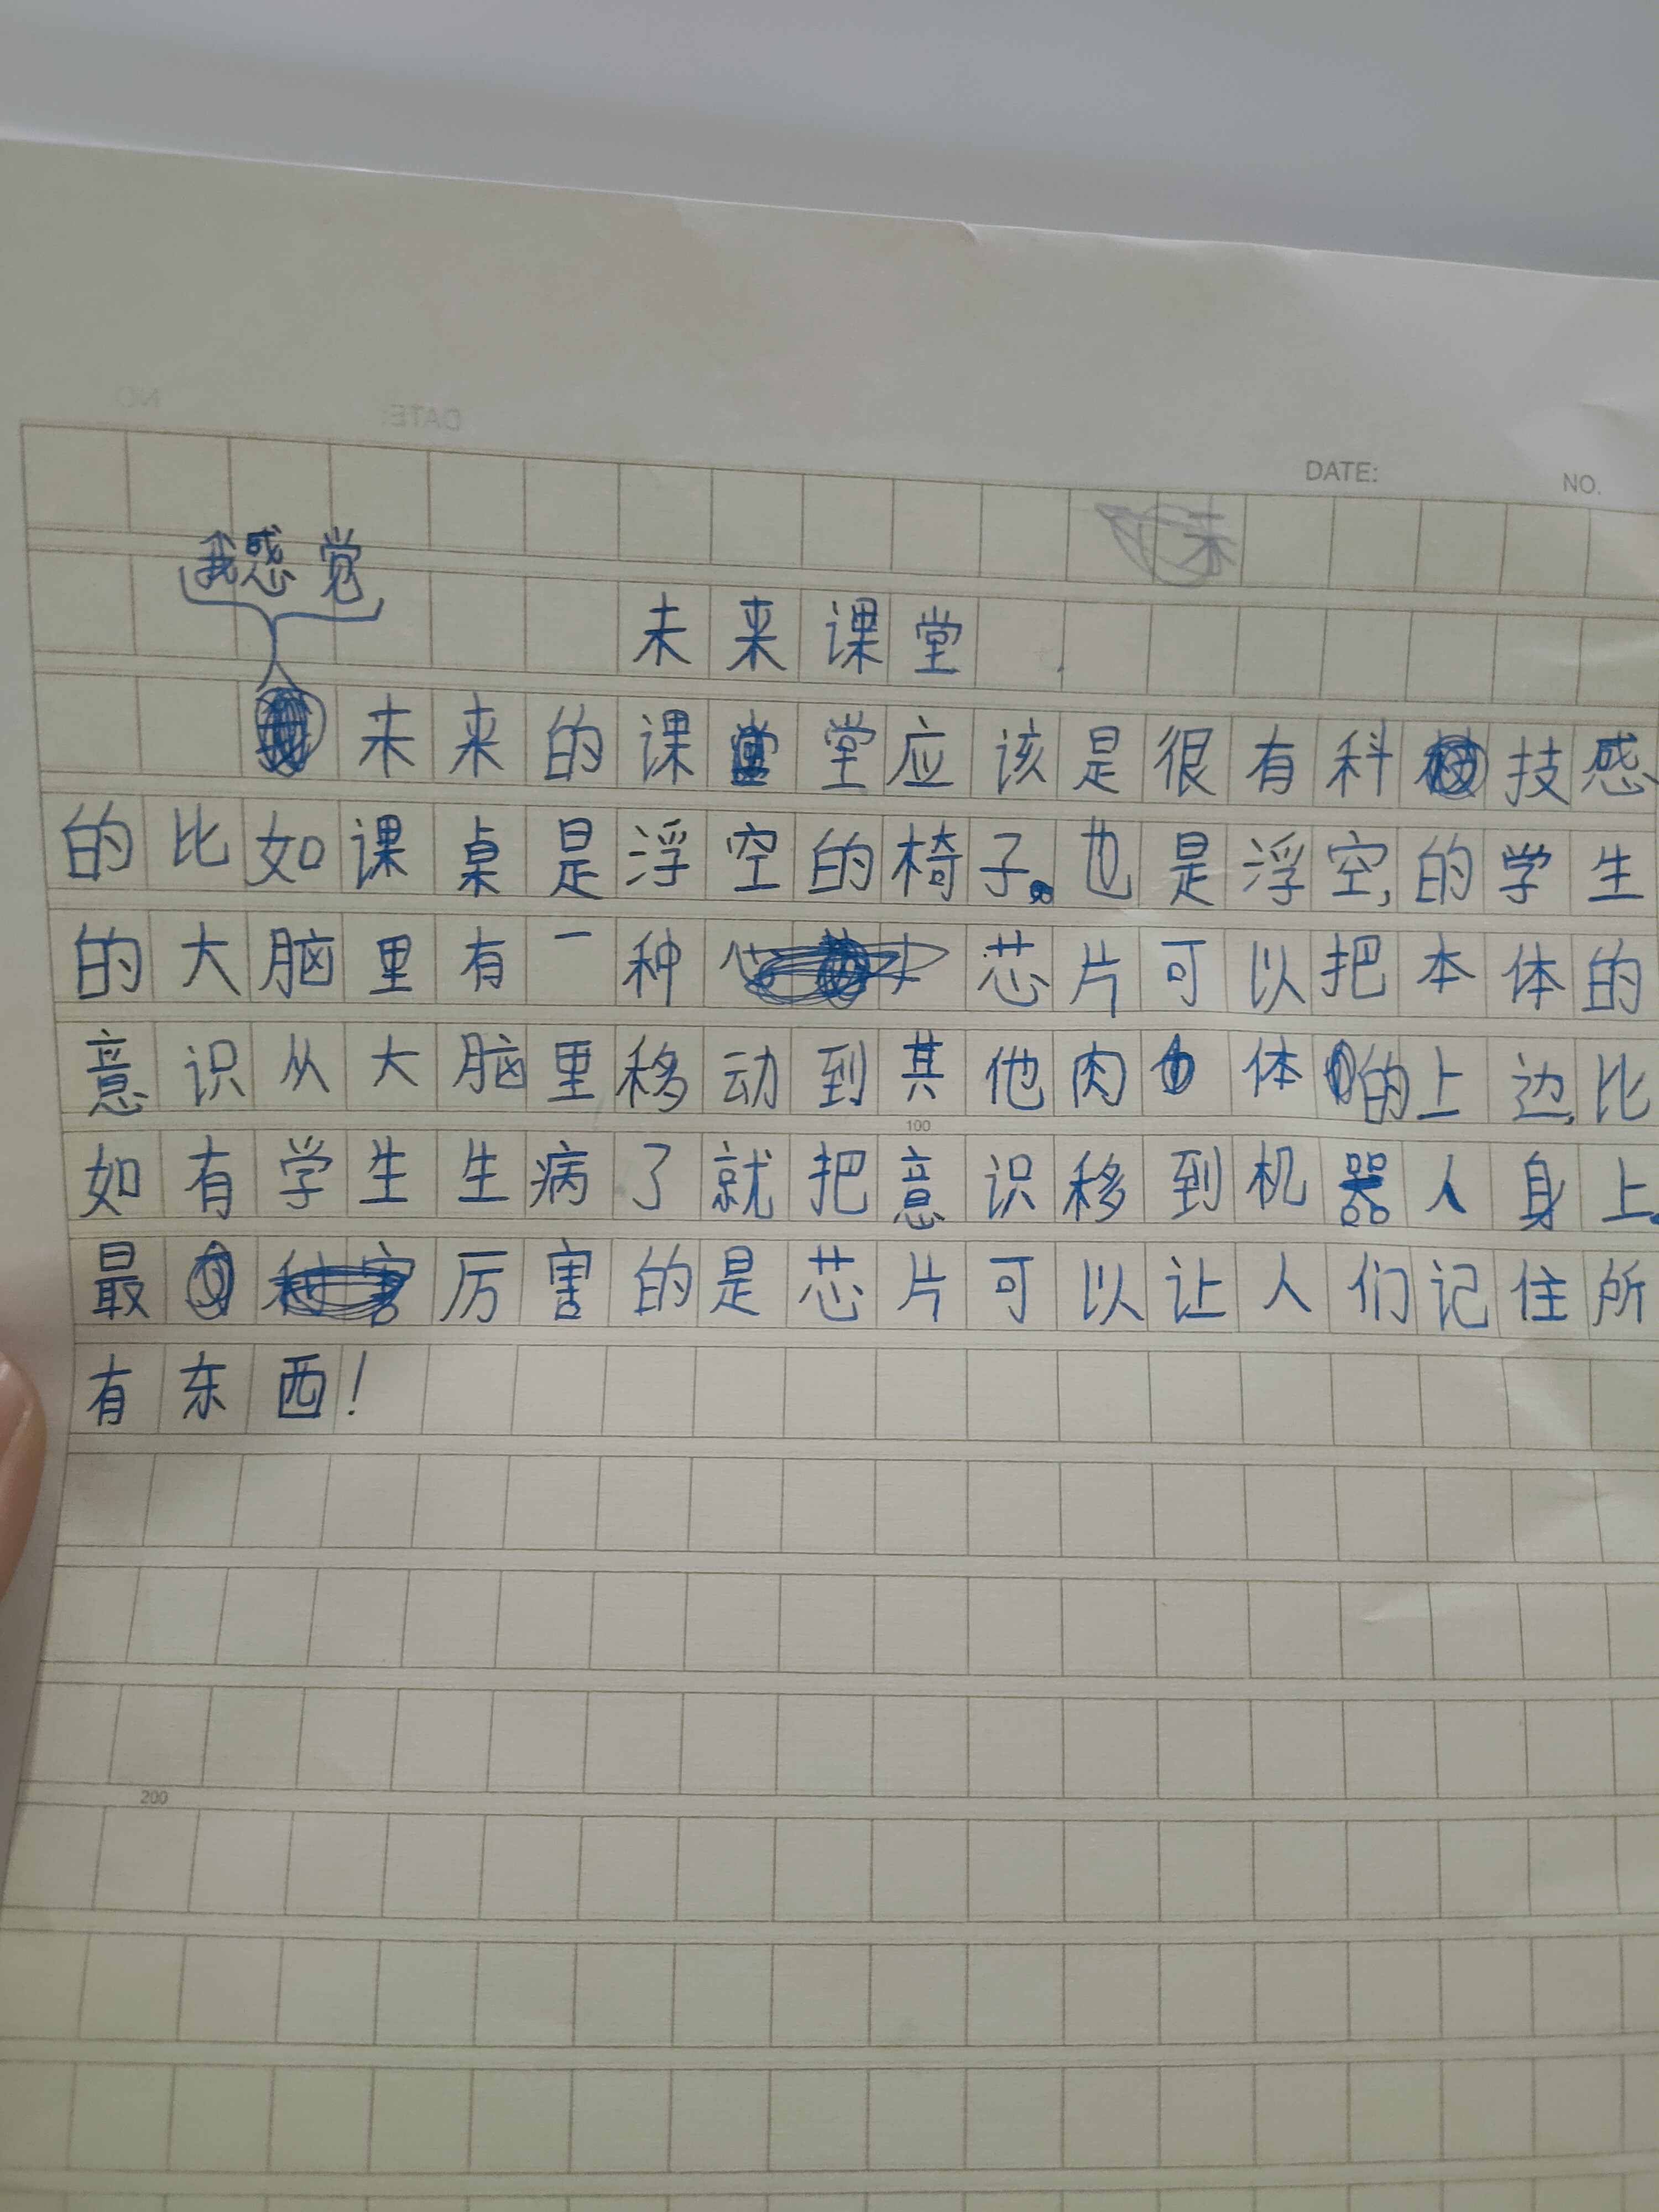 DATE:
NO.
我感觉
未来课堂
未来的课堂应该是很有科技感
的比如课桌是浮空的椅子。也是浮空,的学生
的大脑里有一种芯片可以把本体的
意识从大脑里移动到其他肉体的上边,比
100
如有学生生病了就把意识移到机器人身上。
最厉害的是芯片可以让人们记住所
有东西!
200